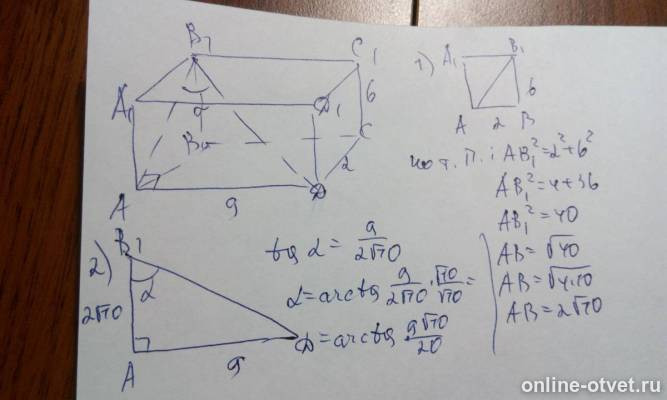 B₁
C₁
A₁
D₁
6
α
B
C
2
A
9
D
1)
A₁ B₁
6
A 2 B
по т. П.: AB₁² = 2² + 6²
AB₁² = 4 + 36
AB₁² = 40
AB = √40
AB = √4·10
AB = 2√10
2)
B₁
α
2√10
A
9
D
tg α = 9/2√10
α = arctg 9/2√10 · √10/√10 =
= arctg 9√10/20
online-otvet.ru